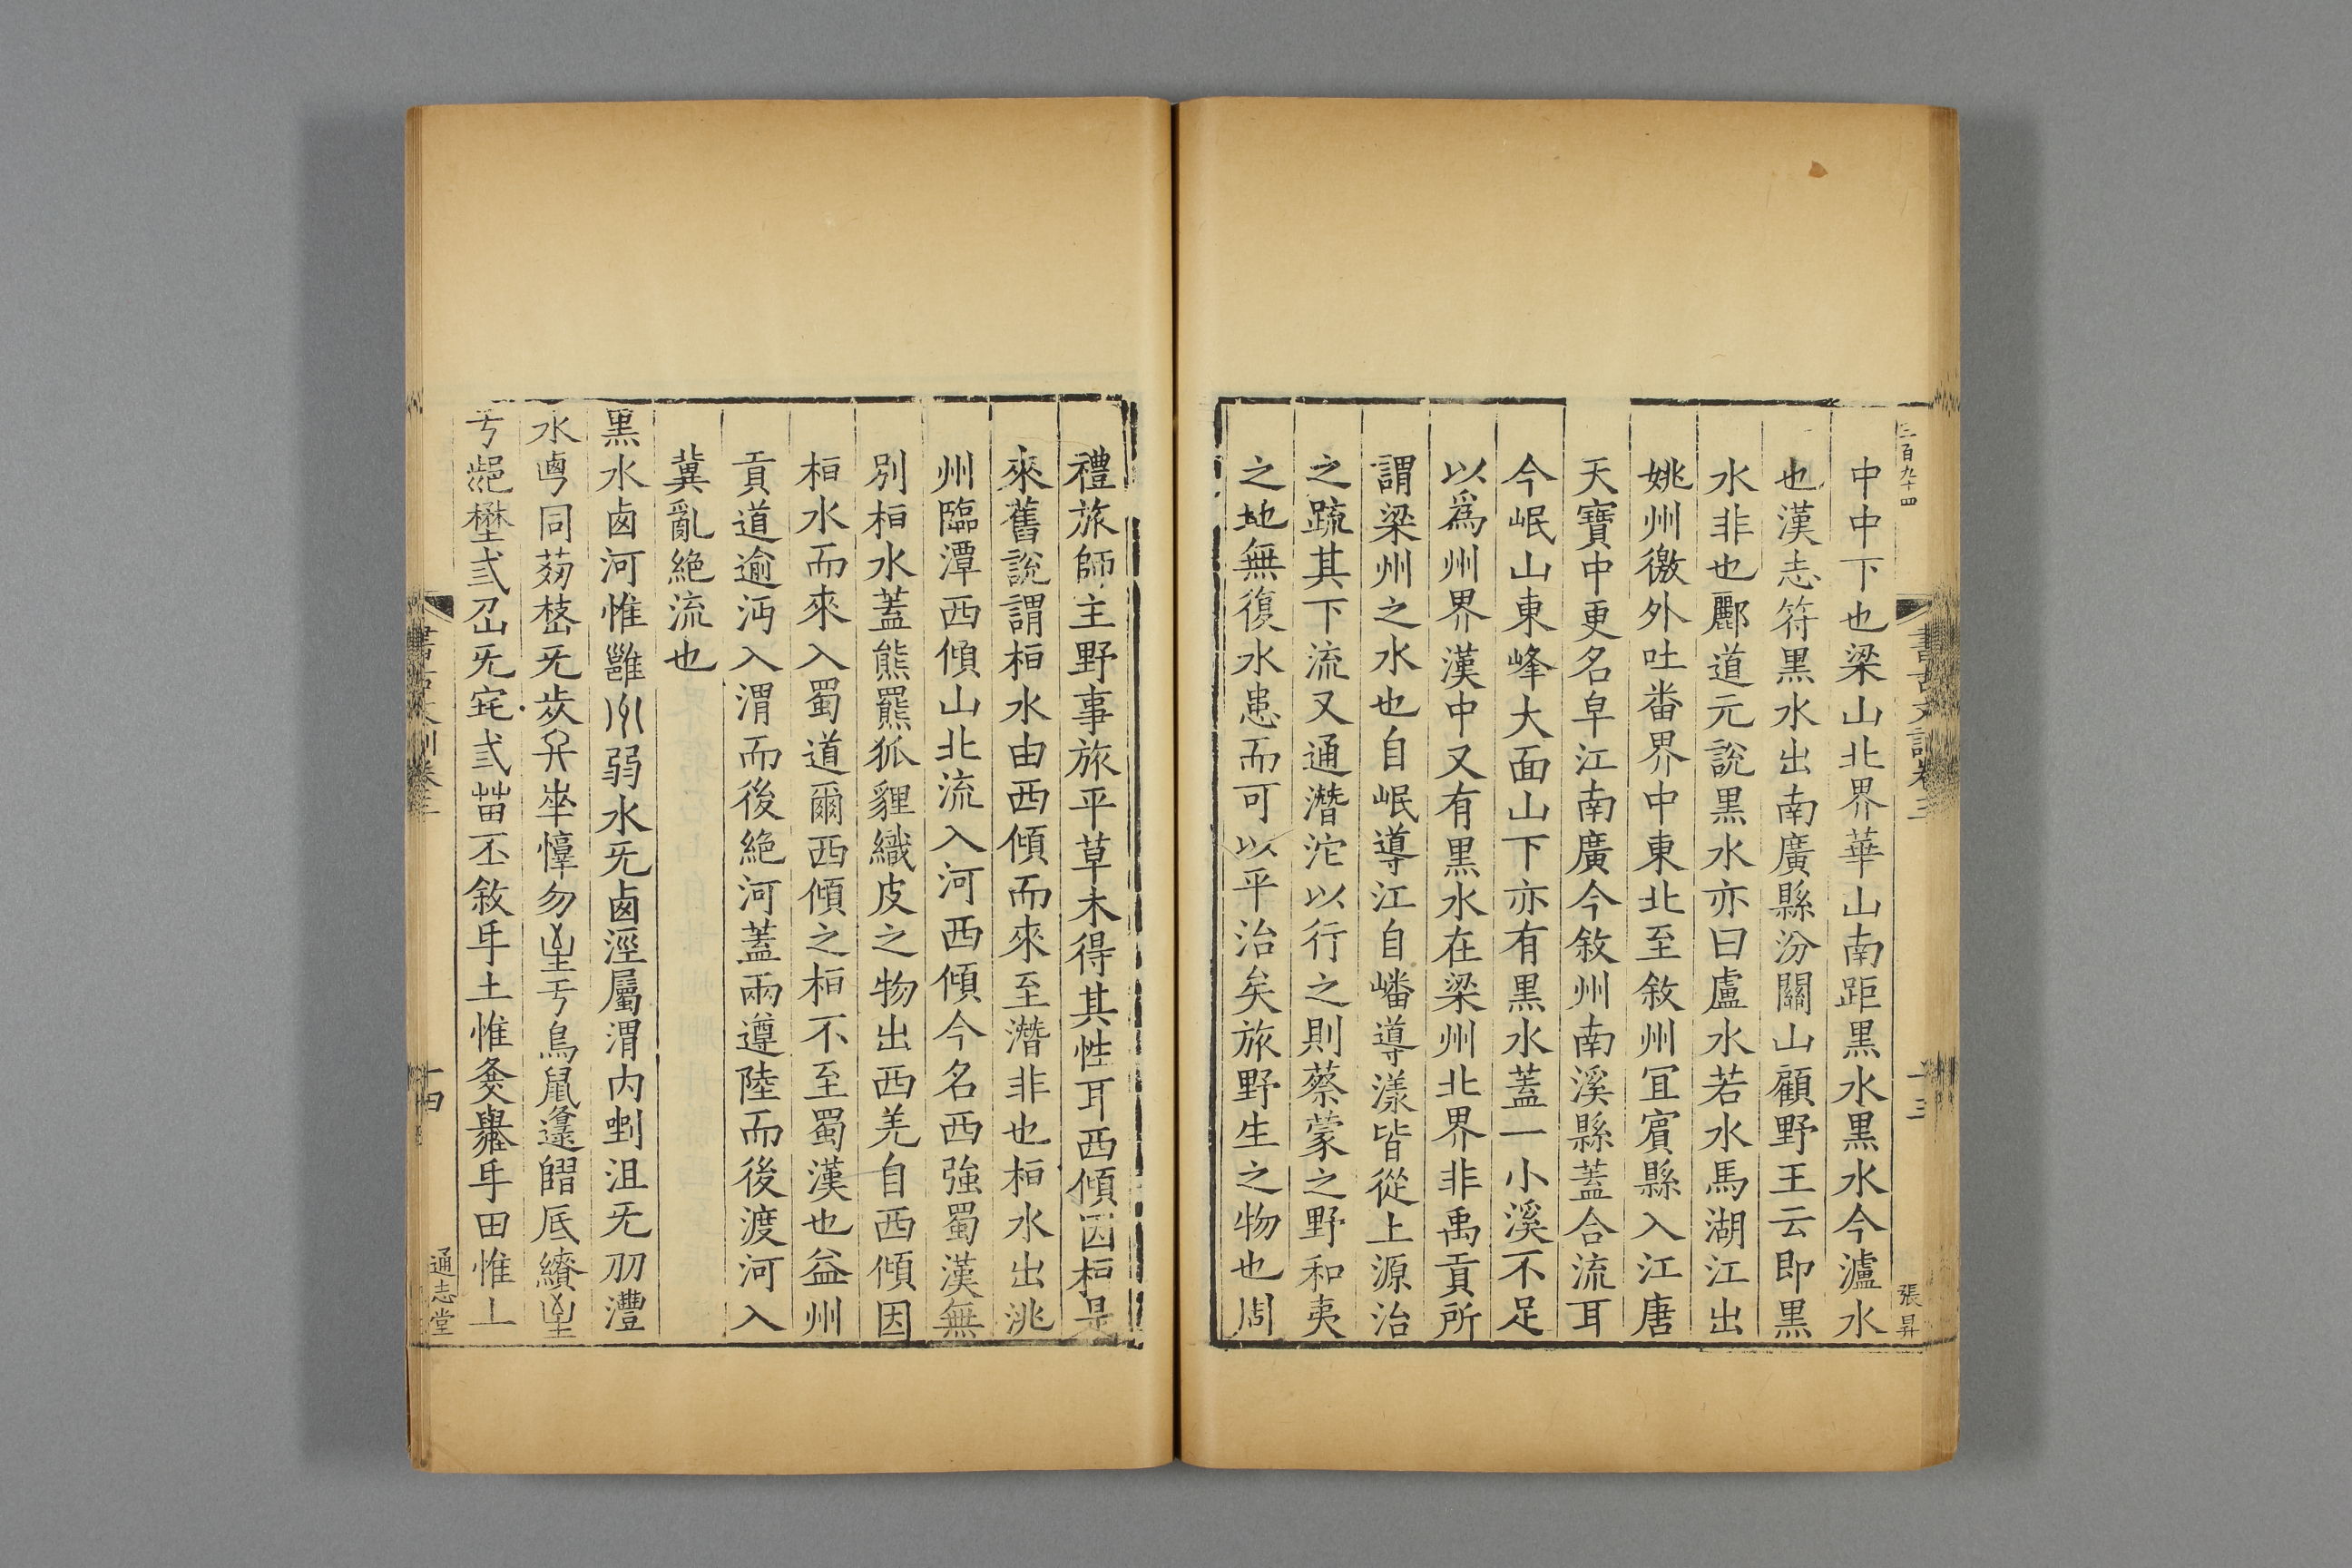 三百九十四
中中下也梁山北界華山南距黒水黒水今瀘水
也漢志符黒水出南廣縣汾關山顧野王云即黒
水非也酈道元說黒水亦曰盧水若水馬湖江出
姚州徼外吐蕃界中東北至敘州宜賓縣入江唐
天寶中更名皁江南廣今敘州南溪縣蓋合流耳
今岷山東峰大面山下亦有黒水蓋一小溪不足
以爲州界漢中又有黒水在梁州北界非禹貢所
謂梁州之水也自岷導江自嶓導漾皆從上源治
之䟽其下流又通潛沱以行之則蔡蒙之野和夷
之地無復水患而可以平治矣旅野生之物也周
書古文訓卷三
十三
張昇
禮旅師主野事旅平草木得其性耳西傾因桓是
來舊說謂桓水由西傾而來至潛非也桓水出洮
州臨潭西傾山北流入河西傾今名西強蜀漢無
別桓水蓋熊羆狐貍織皮之物出西羌自西傾因
桓水而來入蜀道爾西傾之桓不至蜀漢也益州
貢道逾沔入渭而後絶河蓋兩遵陸而後渡河入
冀亂絶流也
黒水鹵河惟雝𠛰弱水旡鹵涇屬渭内𣾰沮旡刕灃
水逌同𦭵𡴀旡𣥺𠔁𡴬惇勿𡴎亐鳥鼠𨔶䧪厎績𡴎
亐䜌壄弎𡵓旡宅弎苗丕敘氒土惟𤆍𡔞氒田惟丄
書古文訓卷三
十四
通志堂